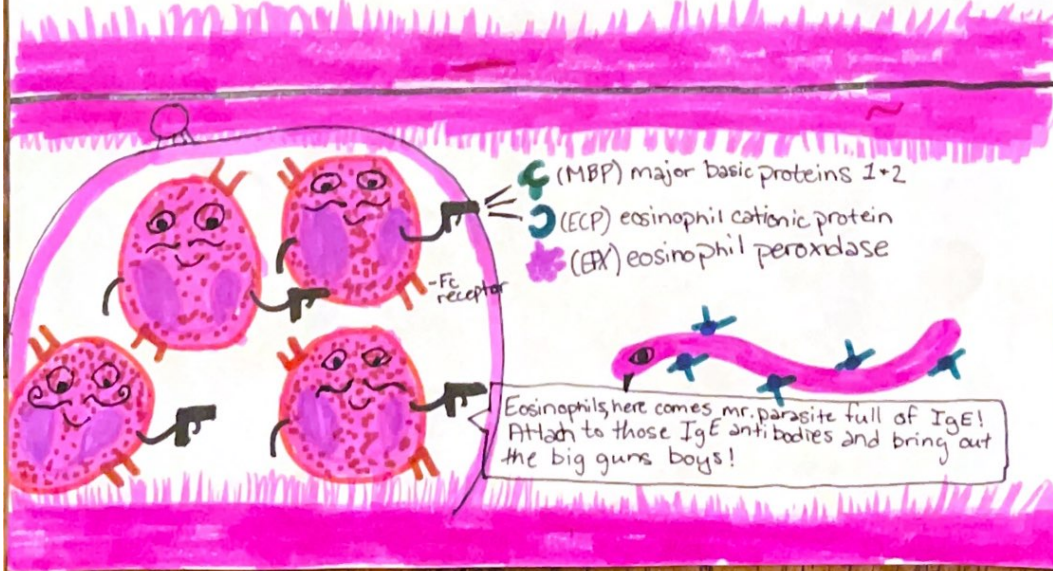 (MBP) major basic proteins 1+2
(ECP) eosinophil cationic protein
(EPX) eosinophil peroxidase
-Fc
receptor
Eosinophils, here comes mr. parasite full of IgE!
Attach to those IgE antibodies and bring out
the big guns boys!